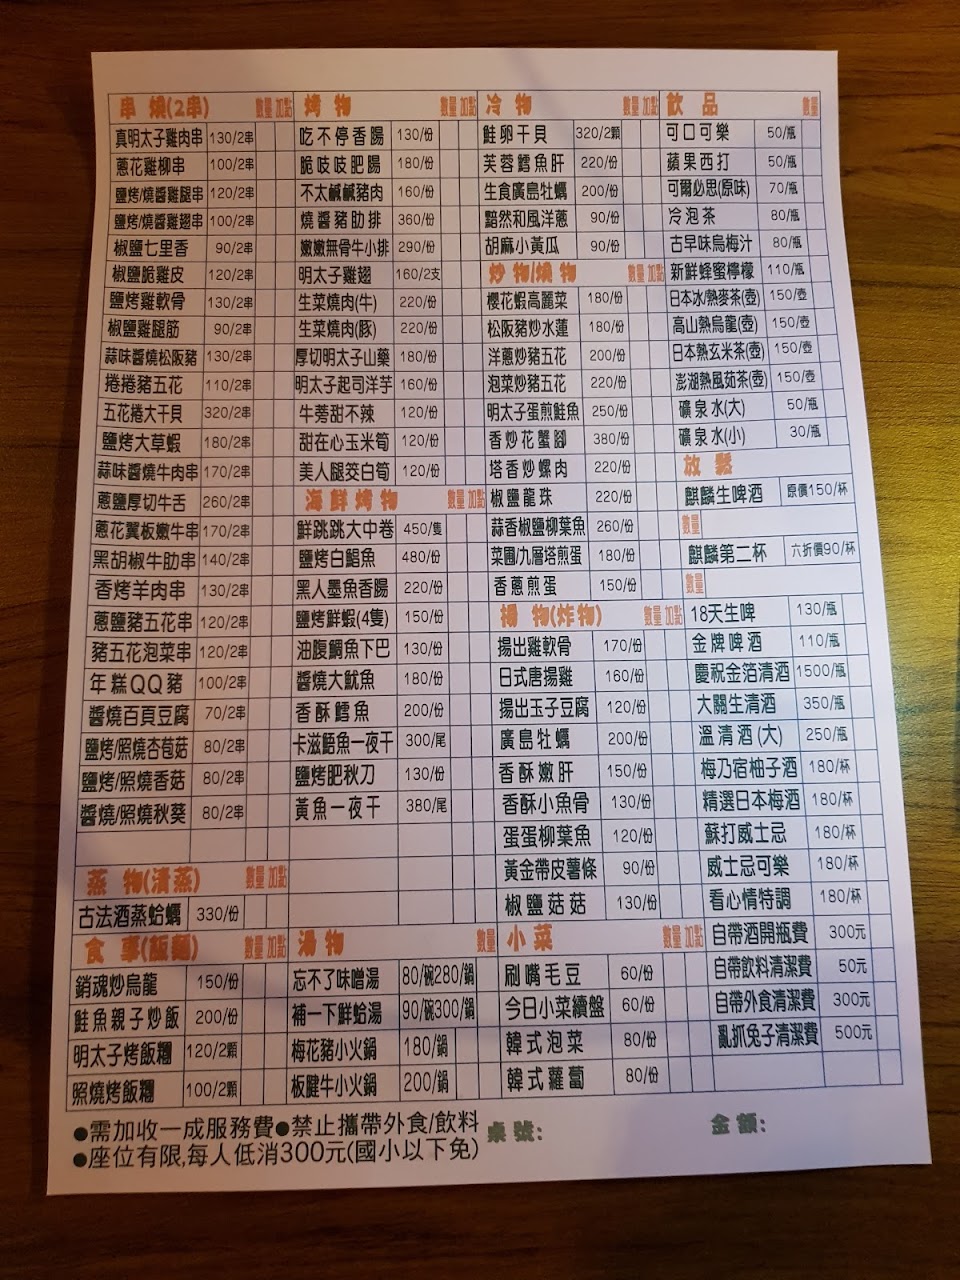 串 燒(2串) 數量 加點
真明太子雞肉串 130/2串
蔥花雞柳串 100/2串
鹽烤/燒醬雞腿串 120/2串
鹽烤/燒醬雞翅串 100/2串
椒鹽七里香 90/2串
椒鹽脆雞皮 120/2串
鹽烤雞軟骨 130/2串
椒鹽雞腿筋 90/2串
蒜味醬燒松阪豬 130/2串
捲捲豬五花 110/2串
五花捲大干貝 320/2串
鹽烤大草蝦 180/2串
蒜味醬燒牛肉串 170/2串
蔥鹽厚切牛舌 260/2串
蔥花翼板嫩牛串 170/2串
黑胡椒牛肋串 140/2串
香烤羊肉串 130/2串
蔥鹽豬五花串 120/2串
豬五花泡菜串 120/2串
年糕QQ豬 100/2串
醬燒百頁豆腐 70/2串
鹽烤/照燒杏苞菇 80/2串
鹽烤/照燒香菇 80/2串
醬燒/照燒秋葵 80/2串
蒸 物(清蒸) 數量 加點
古法酒蒸蛤蠣 330/份
食 事(飯麵) 數量 加點
銷魂炒烏龍 150/份
鮭魚親子炒飯 200/份
明太子烤飯糰 120/2顆
照燒烤飯糰 100/2顆
烤 物 數量 加點
吃不停香腸 130/份
脆吱吱肥腸 180/份
不太鹹鹹豬肉 160/份
燒醬豬肋排 360/份
嫩嫩無骨牛小排 290/份
明太子雞翅 160/2支
生菜燒肉(牛) 220/份
生菜燒肉(豚) 220/份
厚切明太子山藥 180/份
明太子起司洋芋 160/份
牛蒡甜不辣 120/份
甜在心玉米筍 120/份
美人腿筊白筍 120/份
海鮮烤物 數量 加點
鮮跳跳大中卷 450/隻
鹽烤白鯧魚 480/份
黑人墨魚香腸 220/份
鹽烤鮮蝦(4隻) 150/份
油腹鯛魚下巴 130/份
醬燒大魷魚 180/份
香酥鱈魚 200/份
卡滋鯃魚一夜干 300/尾
鹽烤肥秋刀 130/份
黃魚一夜干 380/尾
湯 物 數量
忘不了味噌湯 80/碗280/鍋
補一下鮮蛤湯 90/碗300/鍋
梅花豬小火鍋 180/鍋
板腱牛小火鍋 200/鍋
冷 物 數量 加點
鮭卵干貝 320/2顆
芙蓉鱈魚肝 220/份
生食廣島牡蠣 200/份
黯然和風洋蔥 90/份
胡麻小黃瓜 90/份
炒物/燒物 數量 加點
櫻花蝦高麗菜 180/份
松阪豬炒水蓮 180/份
洋蔥炒豬五花 200/份
泡菜炒豬五花 220/份
明太子蛋煎鮭魚 250/份
香炒花蟹腳 380/份
塔香炒螺肉 220/份
椒鹽龍珠 220/份
蒜香椒鹽柳葉魚 260/份
菜圃/九層塔煎蛋 180/份
香蔥煎蛋 150/份
揚 物(炸物) 數量 加點
揚出雞軟骨 170/份
日式唐揚雞 160/份
揚出玉子豆腐 120/份
廣島牡蠣 200/份
香酥嫩肝 150/份
香酥小魚骨 130/份
蛋蛋柳葉魚 120/份
黃金帶皮薯條 90/份
椒鹽菇菇 130/份
小菜 數量 加點
刷嘴毛豆 60/份
今日小菜續盤 60/份
韓式泡菜 80/份
韓式蘿蔔 80/份
飲品 數量
可口可樂 50/瓶
蘋果西打 50/瓶
可爾必思(原味) 70/瓶
冷泡茶 80/瓶
古早味烏梅汁 80/瓶
新鮮蜂蜜檸檬 110/瓶
日本冰/熱麥茶(壺) 150/壺
高山熱烏龍(壺) 150/壺
日本熱玄米茶(壺) 150/壺
澎湖熱風茹茶(壺) 150/壺
礦泉水(大) 50/瓶
礦泉水(小) 30/瓶
放 鬆
麒麟生啤酒 原價150/杯
數量
麒麟第二杯 六折價90/杯
數量
18天生啤 130/瓶
金牌啤酒 110/瓶
慶祝金箔清酒 1500/瓶
大關生清酒 350/瓶
溫清酒(大) 250/瓶
梅乃宿柚子酒 180/杯
精選日本梅酒 180/杯
蘇打威士忌 180/杯
威士忌可樂 180/杯
看心情特調 180/杯
自帶酒開瓶費 300元
自帶飲料清潔費 50元
自帶外食清潔費 300元
亂抓兔子清潔費 500元
●需加收一成服務費●禁止攜帶外食/飲料
●座位有限,每人低消300元(國小以下免)
桌號:
金額: